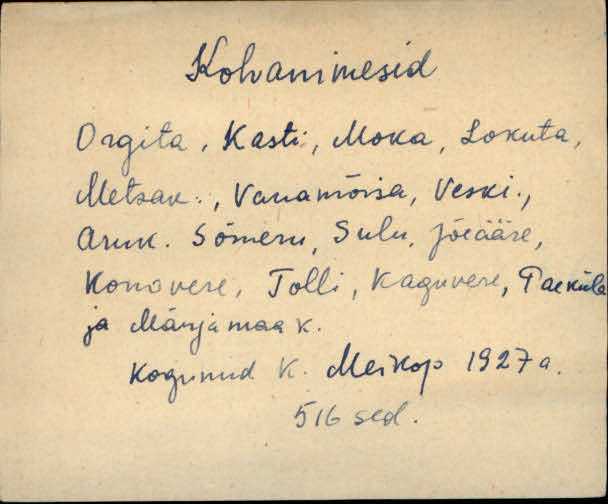 Kohanimesid
Orgita, Kasti, Moka, Lokuta,
Metsak., Vanamõisa, Veski.,
Aruk. Sõmeru, Sulu, Jõeääre,
Konovere, Tolli, Kaguvere, Paeküla
ja Märjamaa k.
Kogunud K. Meikop 1927 a.
516 sed.